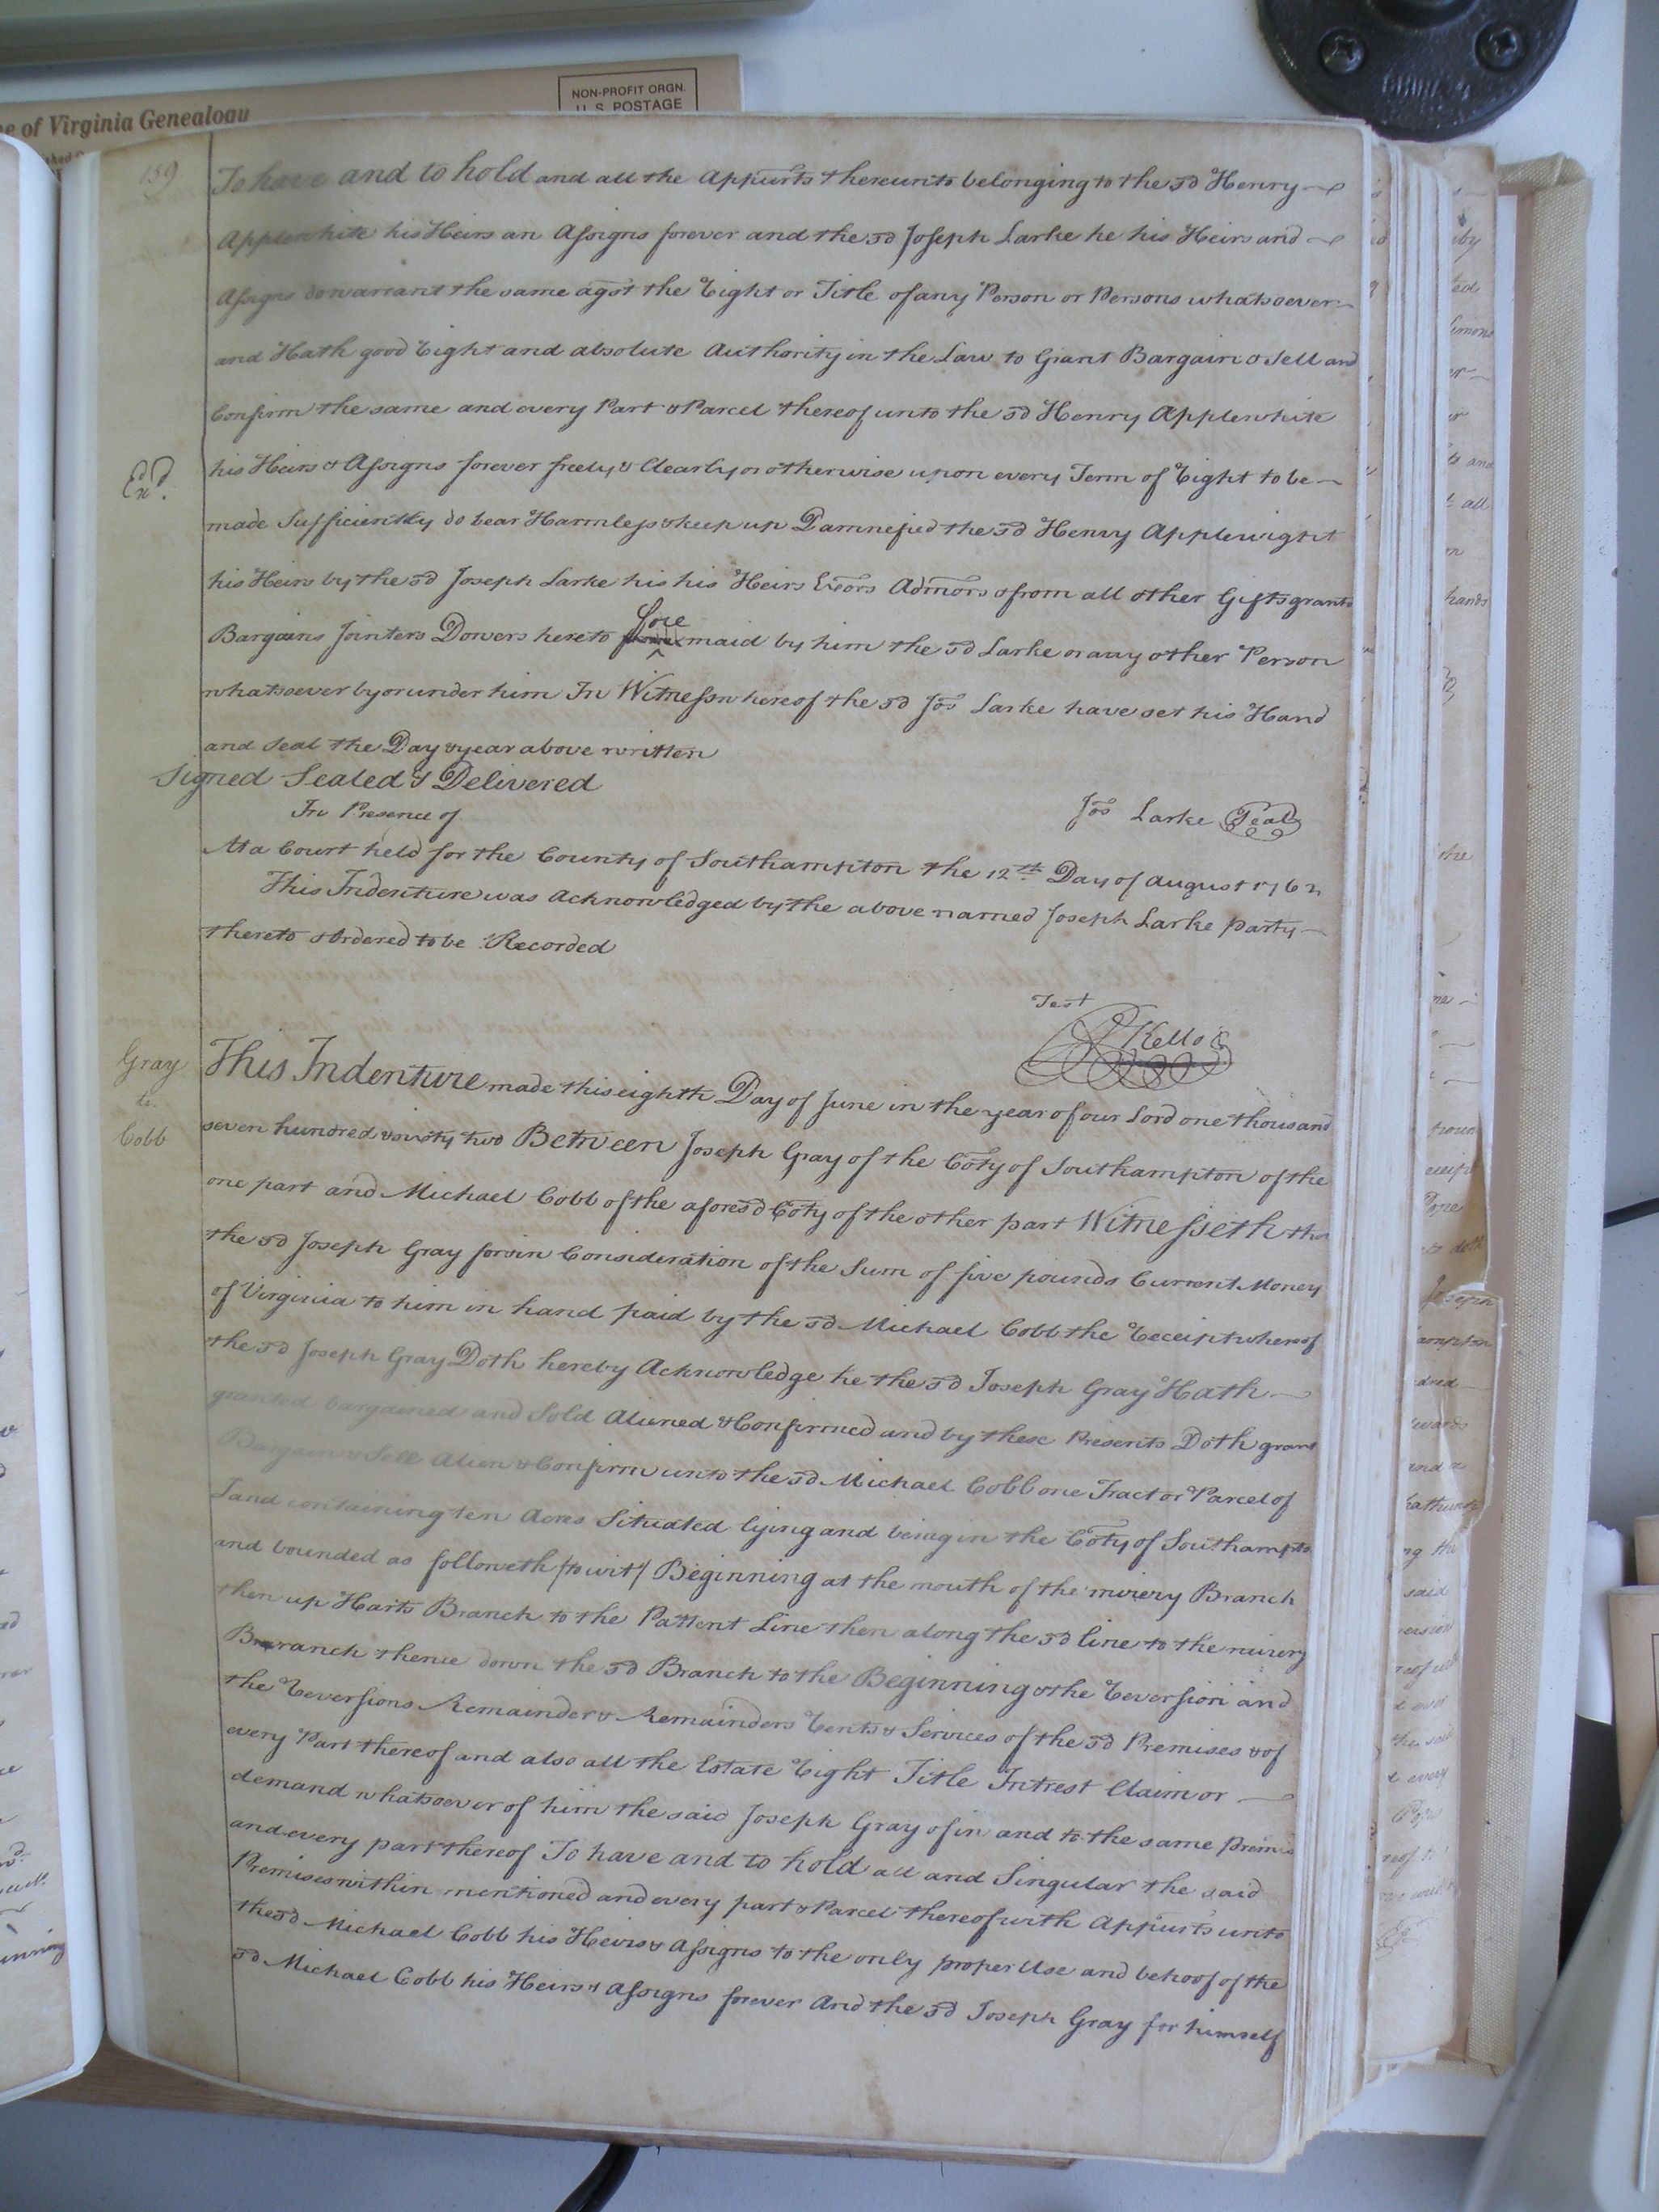 e of Virginia Genealogy
NON-PROFIT ORGN.
U.S. POSTAGE
159
To have and to hold and all the Appurts thereunto belonging to the sd Henry
Applewhite his Heirs an Assigns forever and the sd Joseph Larke he his Heirs and
Assigns do warrant the same agst the Right or Title of any Person or Persons whatsoever
and Hath good Right and absolute Authority in the Law to Grant Bargain & Sell and
Confirm the same and every Part & Parcel thereof unto the sd Henry Applewhite
Exd.
his Heirs & Assigns forever freely & Clearly or otherwise upon every Term of Right to be
made Sufficiently do bear Harmless & keep up Damnefied the sd Henry Applewight
his Heirs by the sd Joseph Larke his his Heirs Exors Admors & from all other Gifts grants
Bargains Jointers Dowers hereto fore maid by him the sd Larke or any other Person
whatsoever by or under him In Witness whereof the sd Jos Larke have set his Hand
and Seal the Day & year above written
Signed Sealed & Delivered
In Presence of
Jos Larke Seal
At a Court held for the County of Southampton the 12th Day of August 1762
This Indenture was Acknowledged by the above named Joseph Larke party
thereto & Ordered to be Recorded
Test
R Kello
Gray
to
Cobb
This Indenture made this eighth Day of June in the year of our Lord one thousand
seven hundred & sixty two Between Joseph Gray of the Coty of Southampton of the
one part and Michael Cobb of the aforesd Coty of the other part Witnesseth that
the sd Joseph Gray for & in Consideration of the Sum of five pounds Current Money
of Virginia to him in hand paid by the sd Michael Cobb the Receipt whereof
the sd Joseph Gray Doth hereby Acknowledge he the sd Joseph Gray Hath
granted bargained and Sold Aliened & Confirmed and by these Presents Doth grant
Bargain & Sell Alien & Confirm unto the sd Michael Cobb one Tract or Parcel of
Land containing ten Acres Situated lying and being in the Coty of Southampto
and bounded as followeth /to wit/ Beginning at the mouth of the mirery Branch
then up Harts Branch to the Pattent Line then along the sd line to the mirery
Branch thence down the sd Branch to the Beginning & the Reversion and
the Reversions Remainder & Remainders Rents & Services of the sd Premises & of
every Part thereof and also all the Estate Right Title Intrest Claim or
demand whatsoever of him the said Joseph Gray of in and to the same Premis
and every part thereof To have and to hold all and Singular the said
Premises within mentioned and every part & Parcel thereof with Appurts unto
the sd Michael Cobb his Heirs & Assigns to the only proper Use and behoof of the
sd Michael Cobb his Heirs & Assigns forever And the sd Joseph Gray for himself